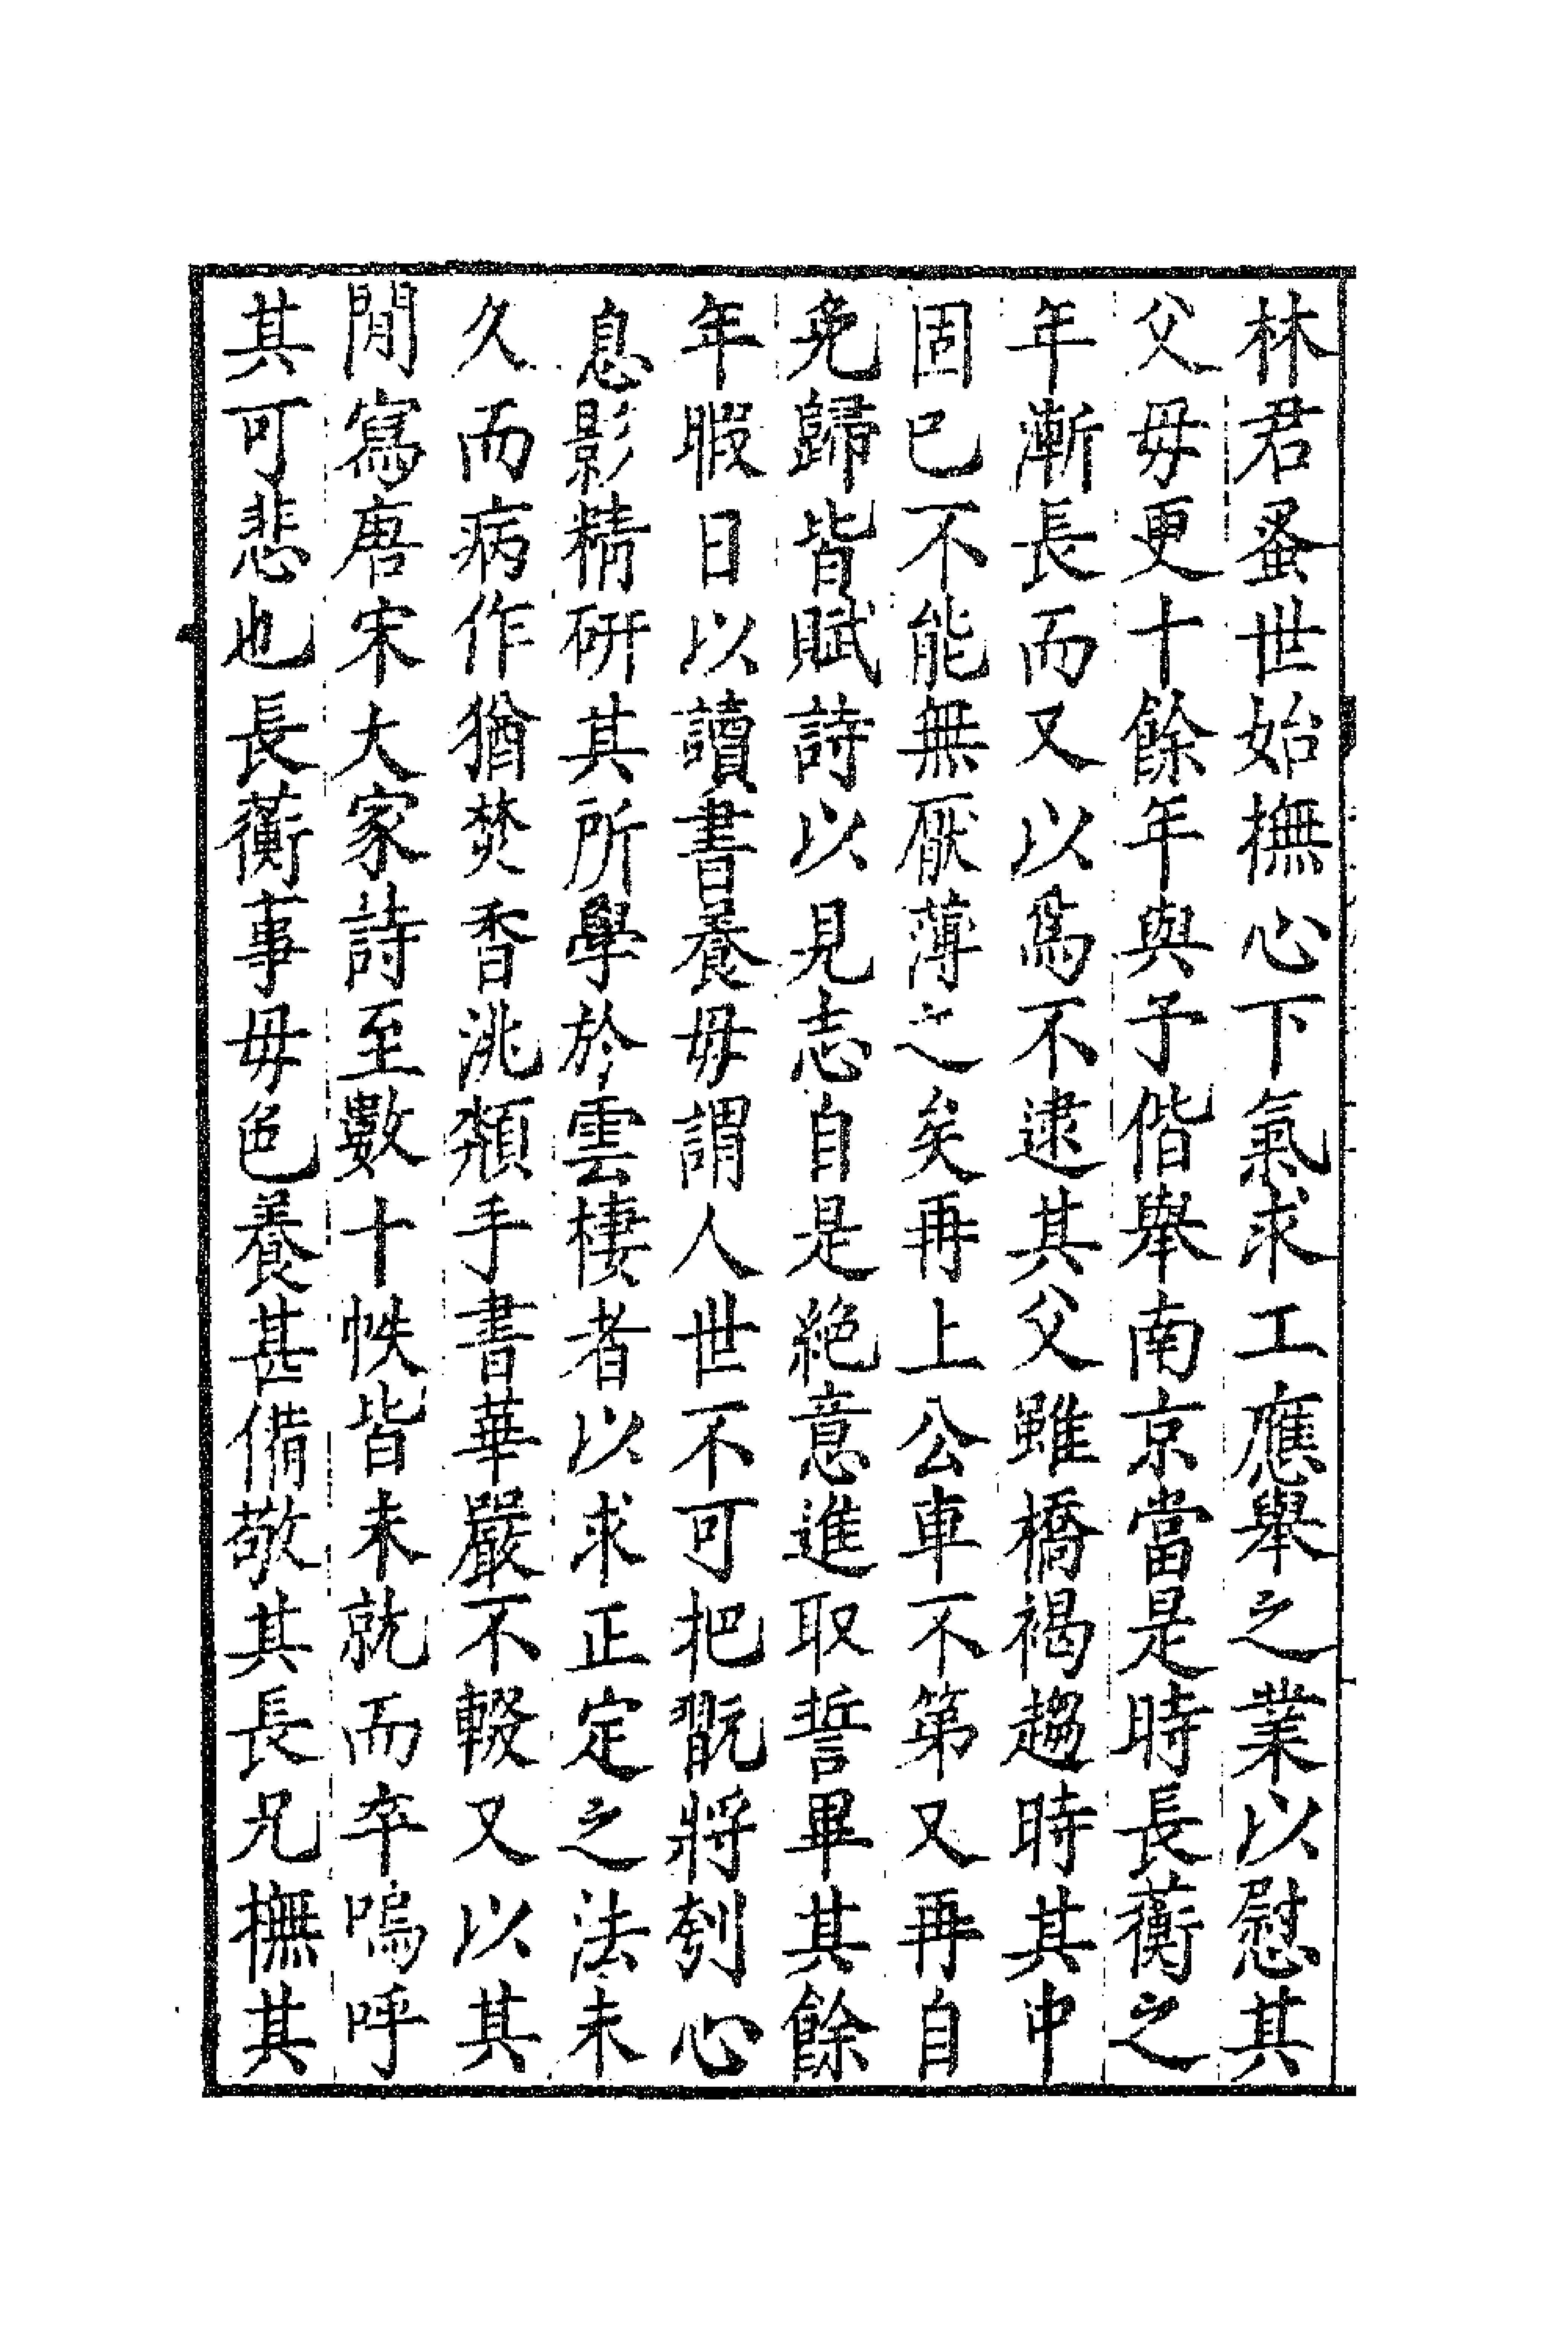 林君蚤世始撫心下氣求工應舉之業以慰其
父毋更十餘年與予偕舉南京當是時長蘅之
年漸長而又以爲不逮其父雖橋褐趨時其中
固已不能無厭薄之矣再上公車不第又再自
免歸皆賦詩以見志自是絶意進取誓畢其餘
年暇日以讀書養毋謂人世不可把翫將刳心
息影精研其所學於雲棲者以求正定之法未
久而病作猶焚香洮頮手書華嚴不輟又以其
閒寫唐宋大家詩至數十帙皆未就而卒嗚呼
其可悲也長蘅事毋色養甚備敬其長兄撫其